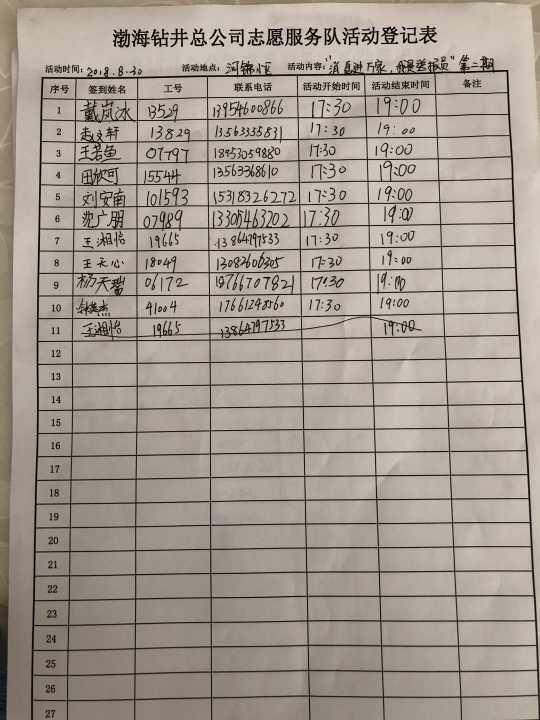 渤海钻井总公司志愿服务队活动登记表
活动时间：2018.8.30 活动地点：河锦恒 活动内容："消息进万家，我是举报员"第二期
序号 签到姓名 工号 联系电话 活动开始时间 活动结束时间 备注
1 戴岚冰 13529 13954600866 17:30 19:00
2 赵文轩 13829 13563335831 17:30 19:00
3 王若鱼 07797 18953059880 17:30 19:00
4 田欣可 15544 13563368610 17:30 19:00
5 刘安南 101593 15318326272 17:30 19:00
6 沈广朋 07989 13305463202 17:30 19:00
7 王湘怡 19665 13864797533 17:30 19:00
8 王天心 18049 13082606305 17:30 19:00
9 杨天瑞 06172 17:30 19:00
10 41004 17661248560 17:30 19:00
11 王湘怡 19665 13864797533 19:00
12
13
14
15
16
17
18
19
20
21
22
23
24
25
26
27